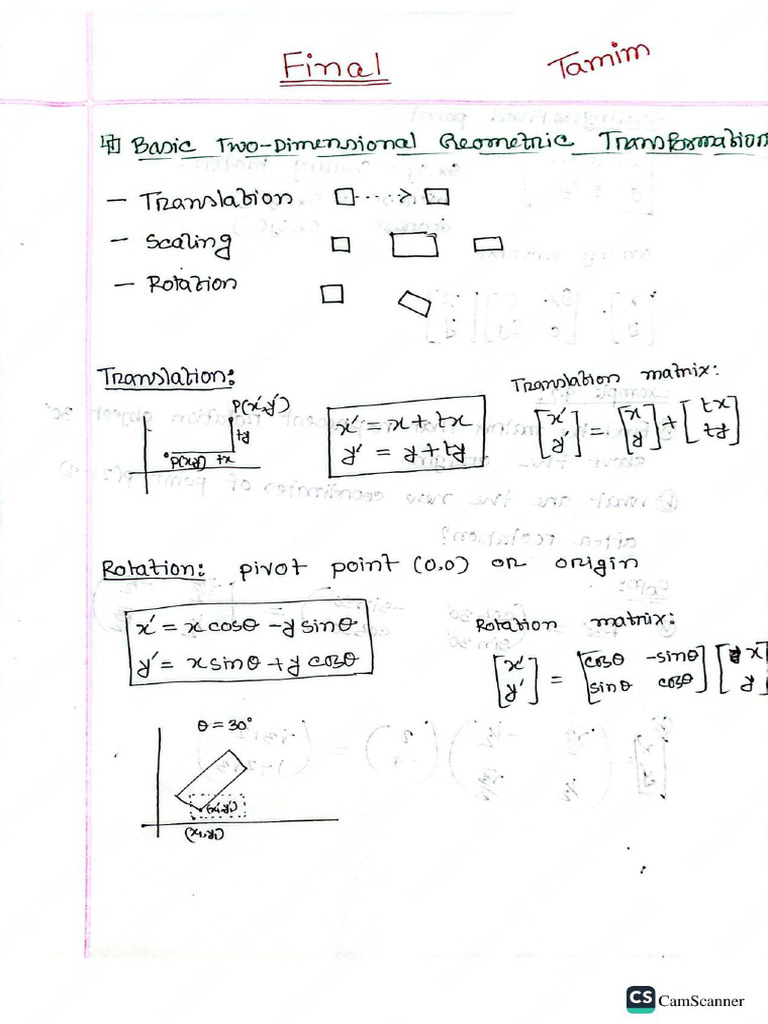 Final
Tamim
Basic Two-Dimensional Geometric Transformation
- Translation
- Scaling
- Rotation
Translation:
P(x′,y′)
ty
P(x,y) tx
x′ = x + tx
y′ = y + ty
Translation matrix:
[x′ y′] = [x y] + [tx ty]
Rotation: pivot point (0,0) or origin
x′ = x cosθ - y sinθ
y′ = x sinθ + y cosθ
Rotation matrix:
[x′ y′] = [cosθ -sinθ sinθ cosθ] [x y]
θ = 30°
(x′,y′)
(x₁,y₁)
CS CamScanner